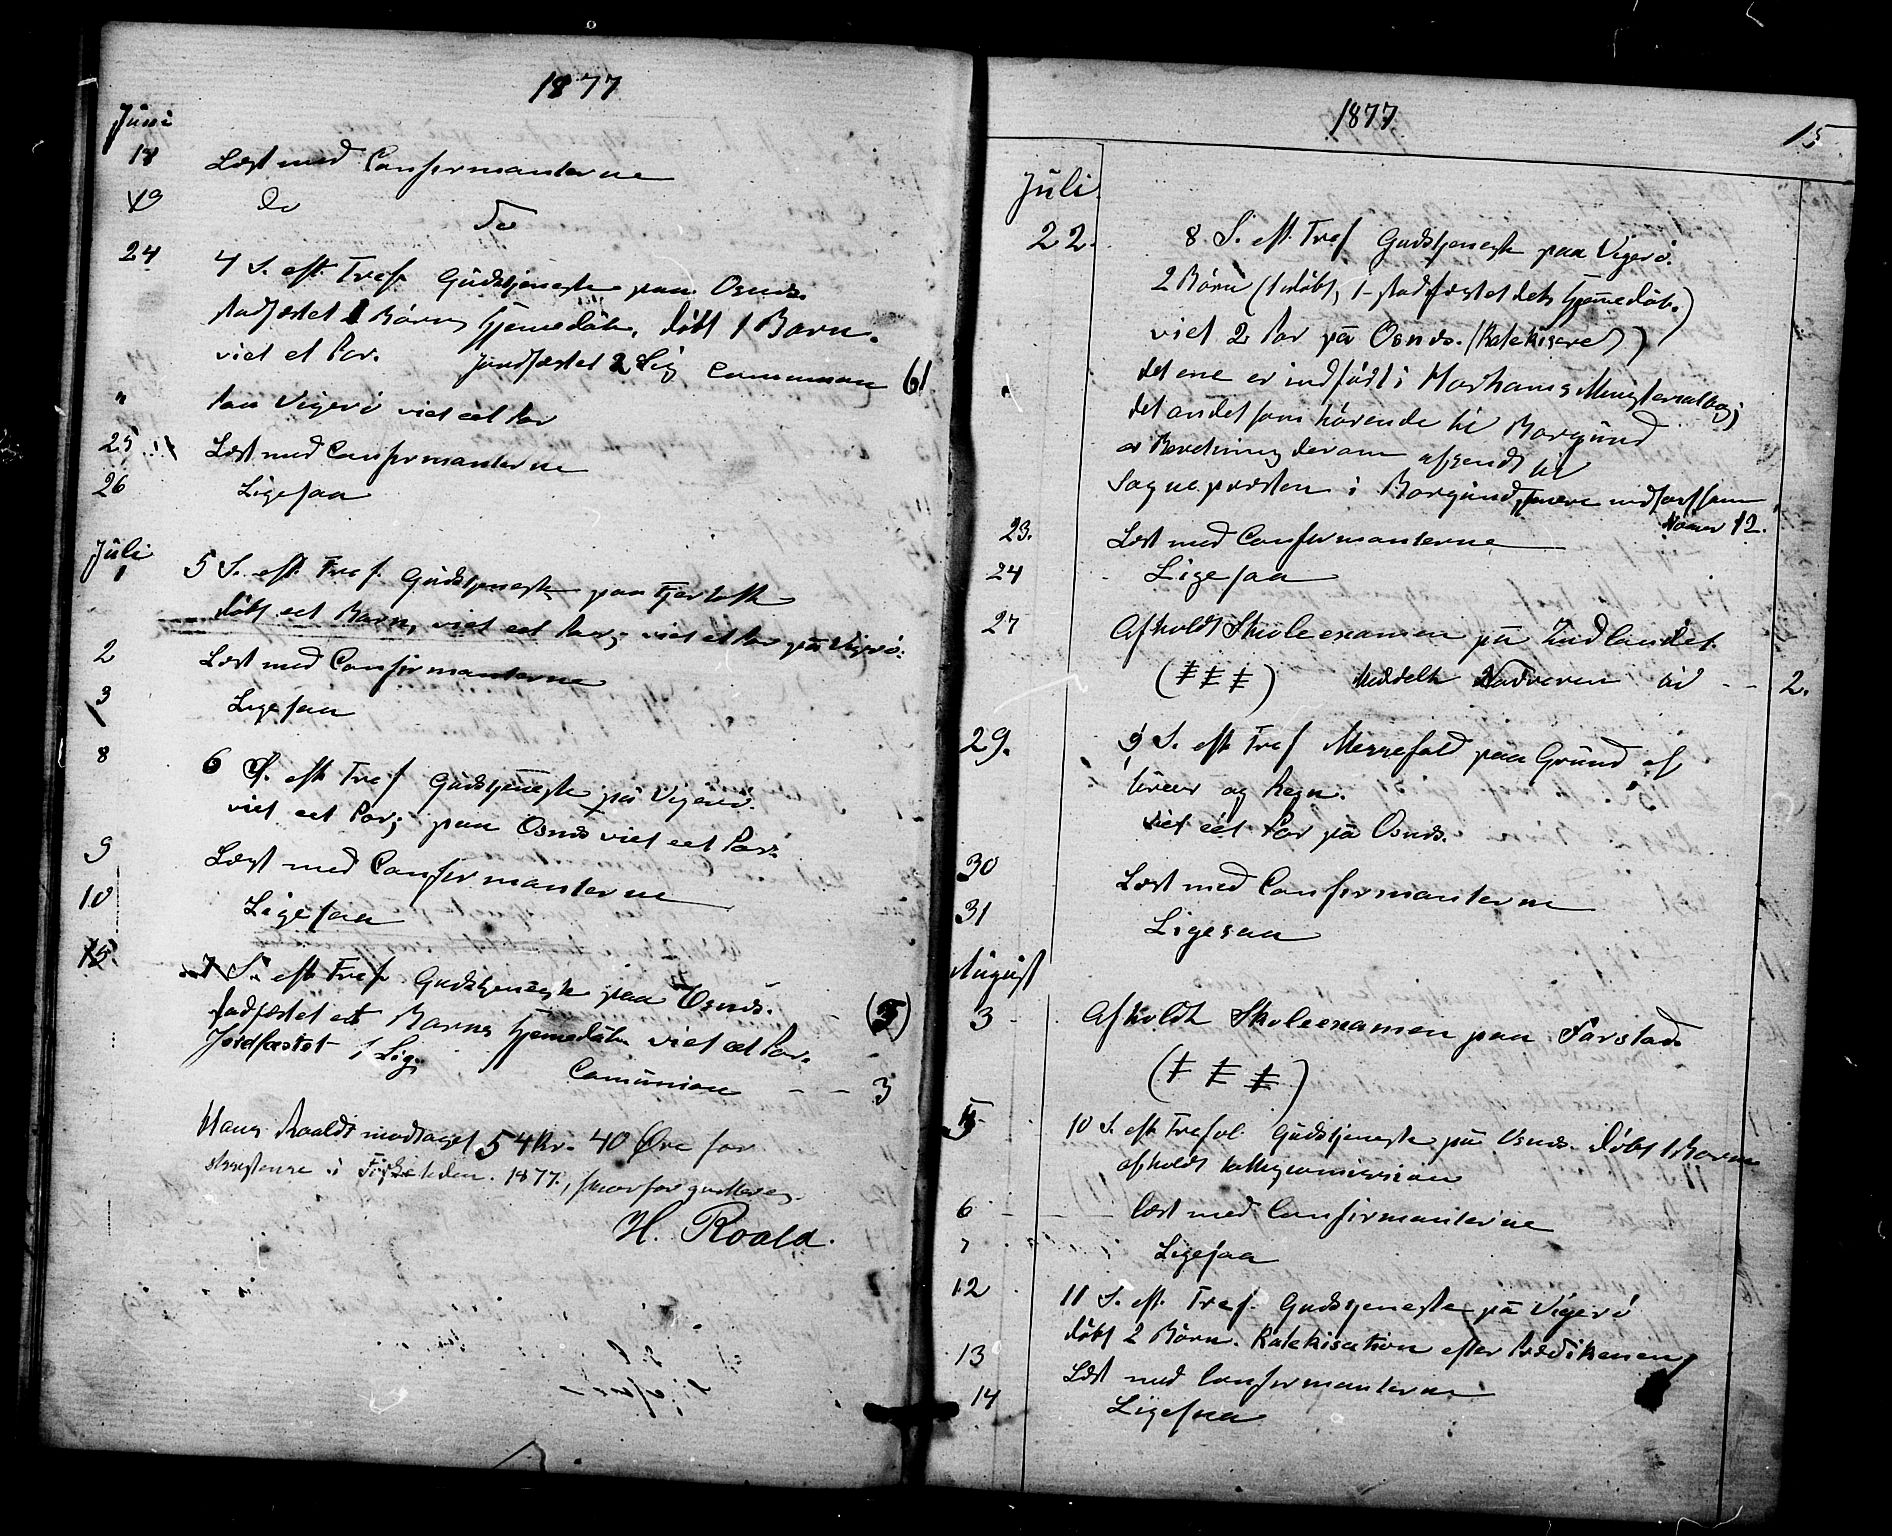 1877
Juni
18 Læst med Confirmanterne
19 do do
24 4 S. eft. Tref. Gudstjeneste paa Osnæs.
stadfæstet 1 Børns Hjemmedåb, døbt 1 Barn.
viet et Par. Jordfæstet 2 Lig Communion 61
" Paa Vigerö viet eet Par
25 Læst med Confirmanterne
26 Ligesaa
Juli
1 5 S. eft. Tref. Gudstjeneste paa Fjørtoft
døbt eet Barn, viet eet Par; viet et Par på Vigerö.
2 Læst med Confirmanterne
3 Ligesaa
8 6 S. eft Tref Gudstjeneste på Vigerö.
viet eet Par; paa Osnæs viet eet Par.
9 Læst med Confirmanterne
10 Ligesaa
15. 7 S. eft Tref. Gudstjeneste paa Osnæs.
stadfæstet eet Barns Hjemmedåb viet eet Par.
Jordfæstet 1 Lig. Comunion - - 3
Hans Roaldt modtaget 54 Kr. 40 Øre for
i Fisketiden. 1877, hvorfor qvitteres.
H. Roald.
1877
15.
Juli.
22. 8 S. eft. Tref Gudstjeneste paa Vigerö.
2 Börn (1 döbt, 1 stadfæstet dets Hjemmedåb.)
viet 2 Par på Osnæs. (Katekiseret)
det ene er indført i Harhams Ministerialbog;
det andet som hörende til Borgund
er Beretning derom afsendt til
Sognepræsten i Borgund, senere indført som
Nomer 12.
23. Læst med Confirmanterne
24 Ligesaa
27 Afholdt Skoleexamen på Indlandet.
( ŧ ŧ ŧ ) Meddelt Nadveren til - - 2.
29. 9 S. eft Tref Messefald paa Grund af
Uveir og Regn.
viet eet Par på Osnæs.
30 Læst med Confirmanterne
31 Ligesaa
August
3 Afholdt Skoleexamen paa Farstad
( ŧ ŧ ŧ )
5 10 S. eft Trefol. Gudstjeneste på Osnæs. Døbt 1 Barn
afholdt
6 - - - Læst med Confirmanterne
7 Ligesaa
12 11 S. eft. Tref. Gudstjeneste på Vigerö
döbt 2 Börn. Katekisation efter Prædikenen
13 Læst med Confirmanterne
14 Ligesaa